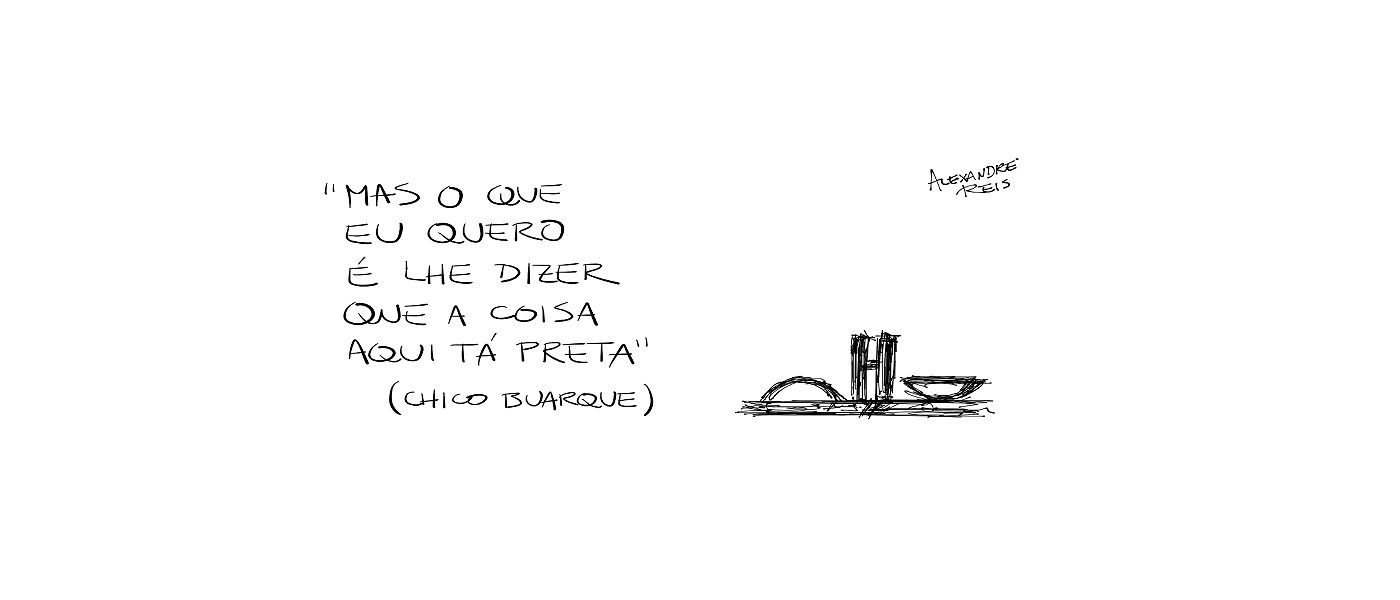 "MAS O QUE
EU QUERO
É LHE DIZER
QUE A COISA
AQUI TÁ PRETA"
(CHICO BUARQUE)
ALEXANDRE
REIS